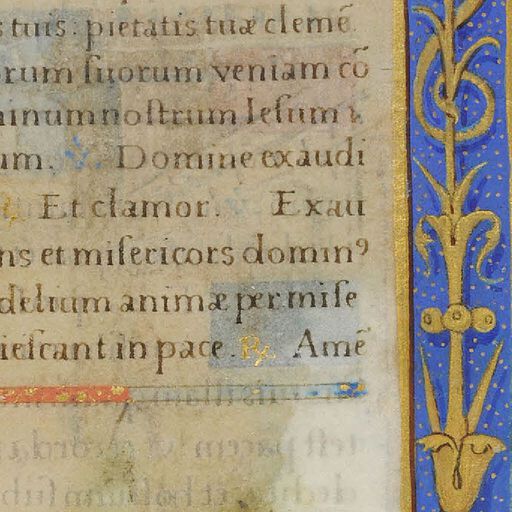 s tuis: pietatis tuæ clemẽ
orum suorum veniam cõ
ninum nostrum Iesum
um. V. Domine exaudi
R. Et clamor. Exau
ns et misericors dominꝰ
delium animæ per mise
iescant in pace. R. Amẽ